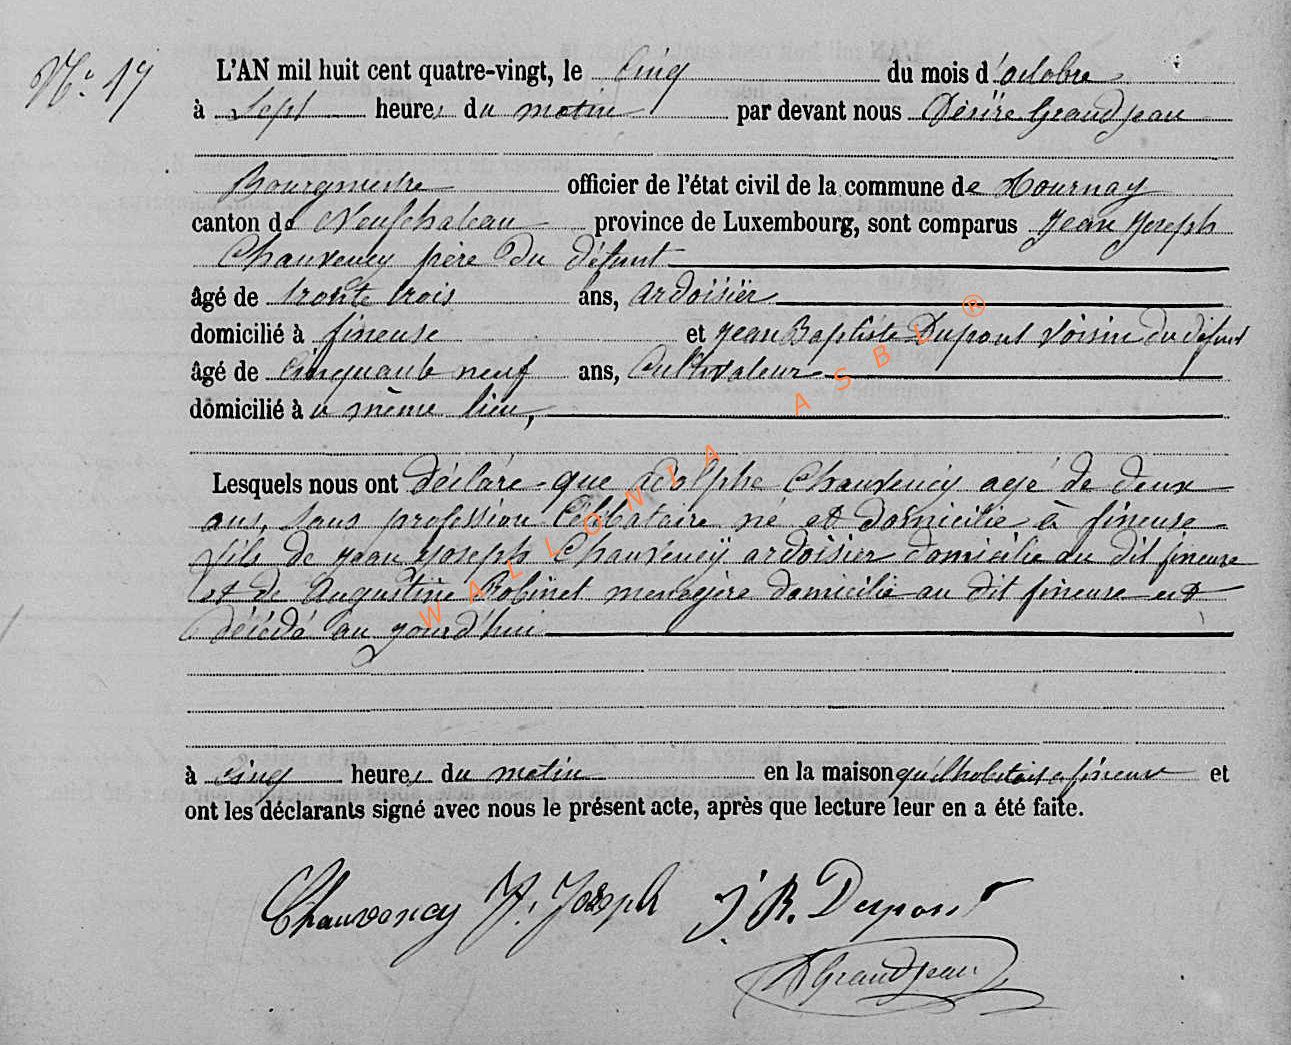 N° 17
L'AN mil huit cent quatre-vingt, le Cinq du mois d'octobre
à Sept heures du matin par devant nous Désiré Grandjean
Bourgmestre officier de l'état civil de la commune de Tournay
canton de Neufchateau province de Luxembourg, sont comparus Jean Joseph
Chauvency père du défunt
âgé de trente trois ans, ardoisier
domicilié à fineuse et Jean Baptiste Dupont voisin du défunt
âgé de Cinquante neuf ans, Cultivateur
domicilié à u même lieu,
Lesquels nous ont déclaré que Adolphe Chauvency agé de deux
ans, sans profession Célibataire né et domicilié à fineuse
fils de jean Joseph Chauvency ardoisier domicilié au dit fineuse
et de Augustine Robinet menagère domicilié au dit fineuse est
décédé au jourd'hui
à cinq heures du matin en la maison qu'il habitait a fineuse et
ont les déclarants signé avec nous le présent acte, après que lecture leur en a été faite.
Chauvency J. Joseph J. B. Dupont
D Grandjean
WALLONIA ASBL ®